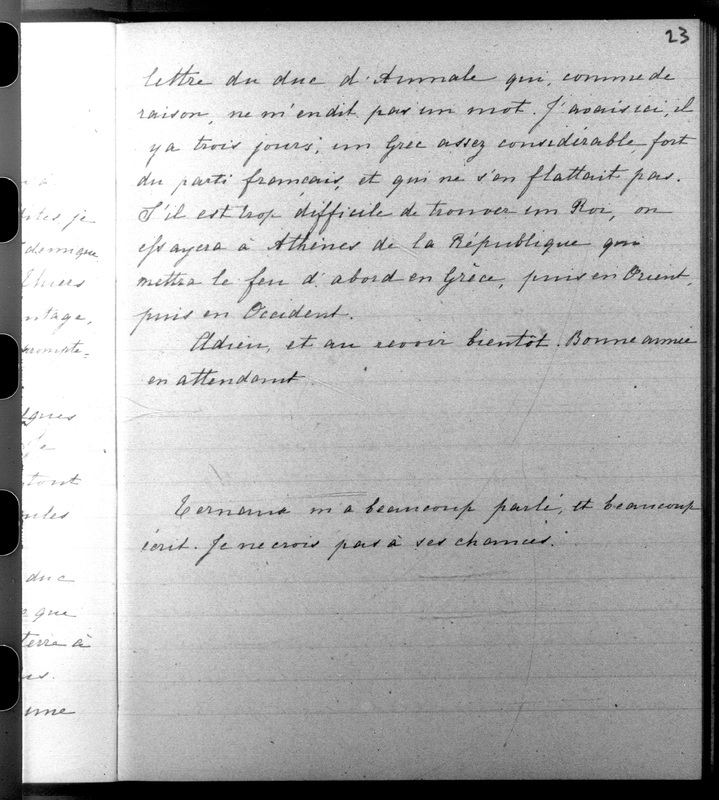 23
lettre du duc d'Aumale qui, comme de
raison, ne m'en dit pas un mot. J'avais ici, il
y a trois jours, un Grec assez considérable, fort
du parti français, et qui ne s'en flattait pas.
S'il est trop difficile de trouver un Roi, on
essayera à Athènes de la République qui
mettra le feu d'abord en Grèce, puis en Orient,
puis en Occident.
Adieu, et au revoir bientôt. Bonne année
en attendant.
m'a beaucoup parlé, et beaucoup
écrit. Je ne crois pas à ses chances.
à
je
Thiers
duc
que